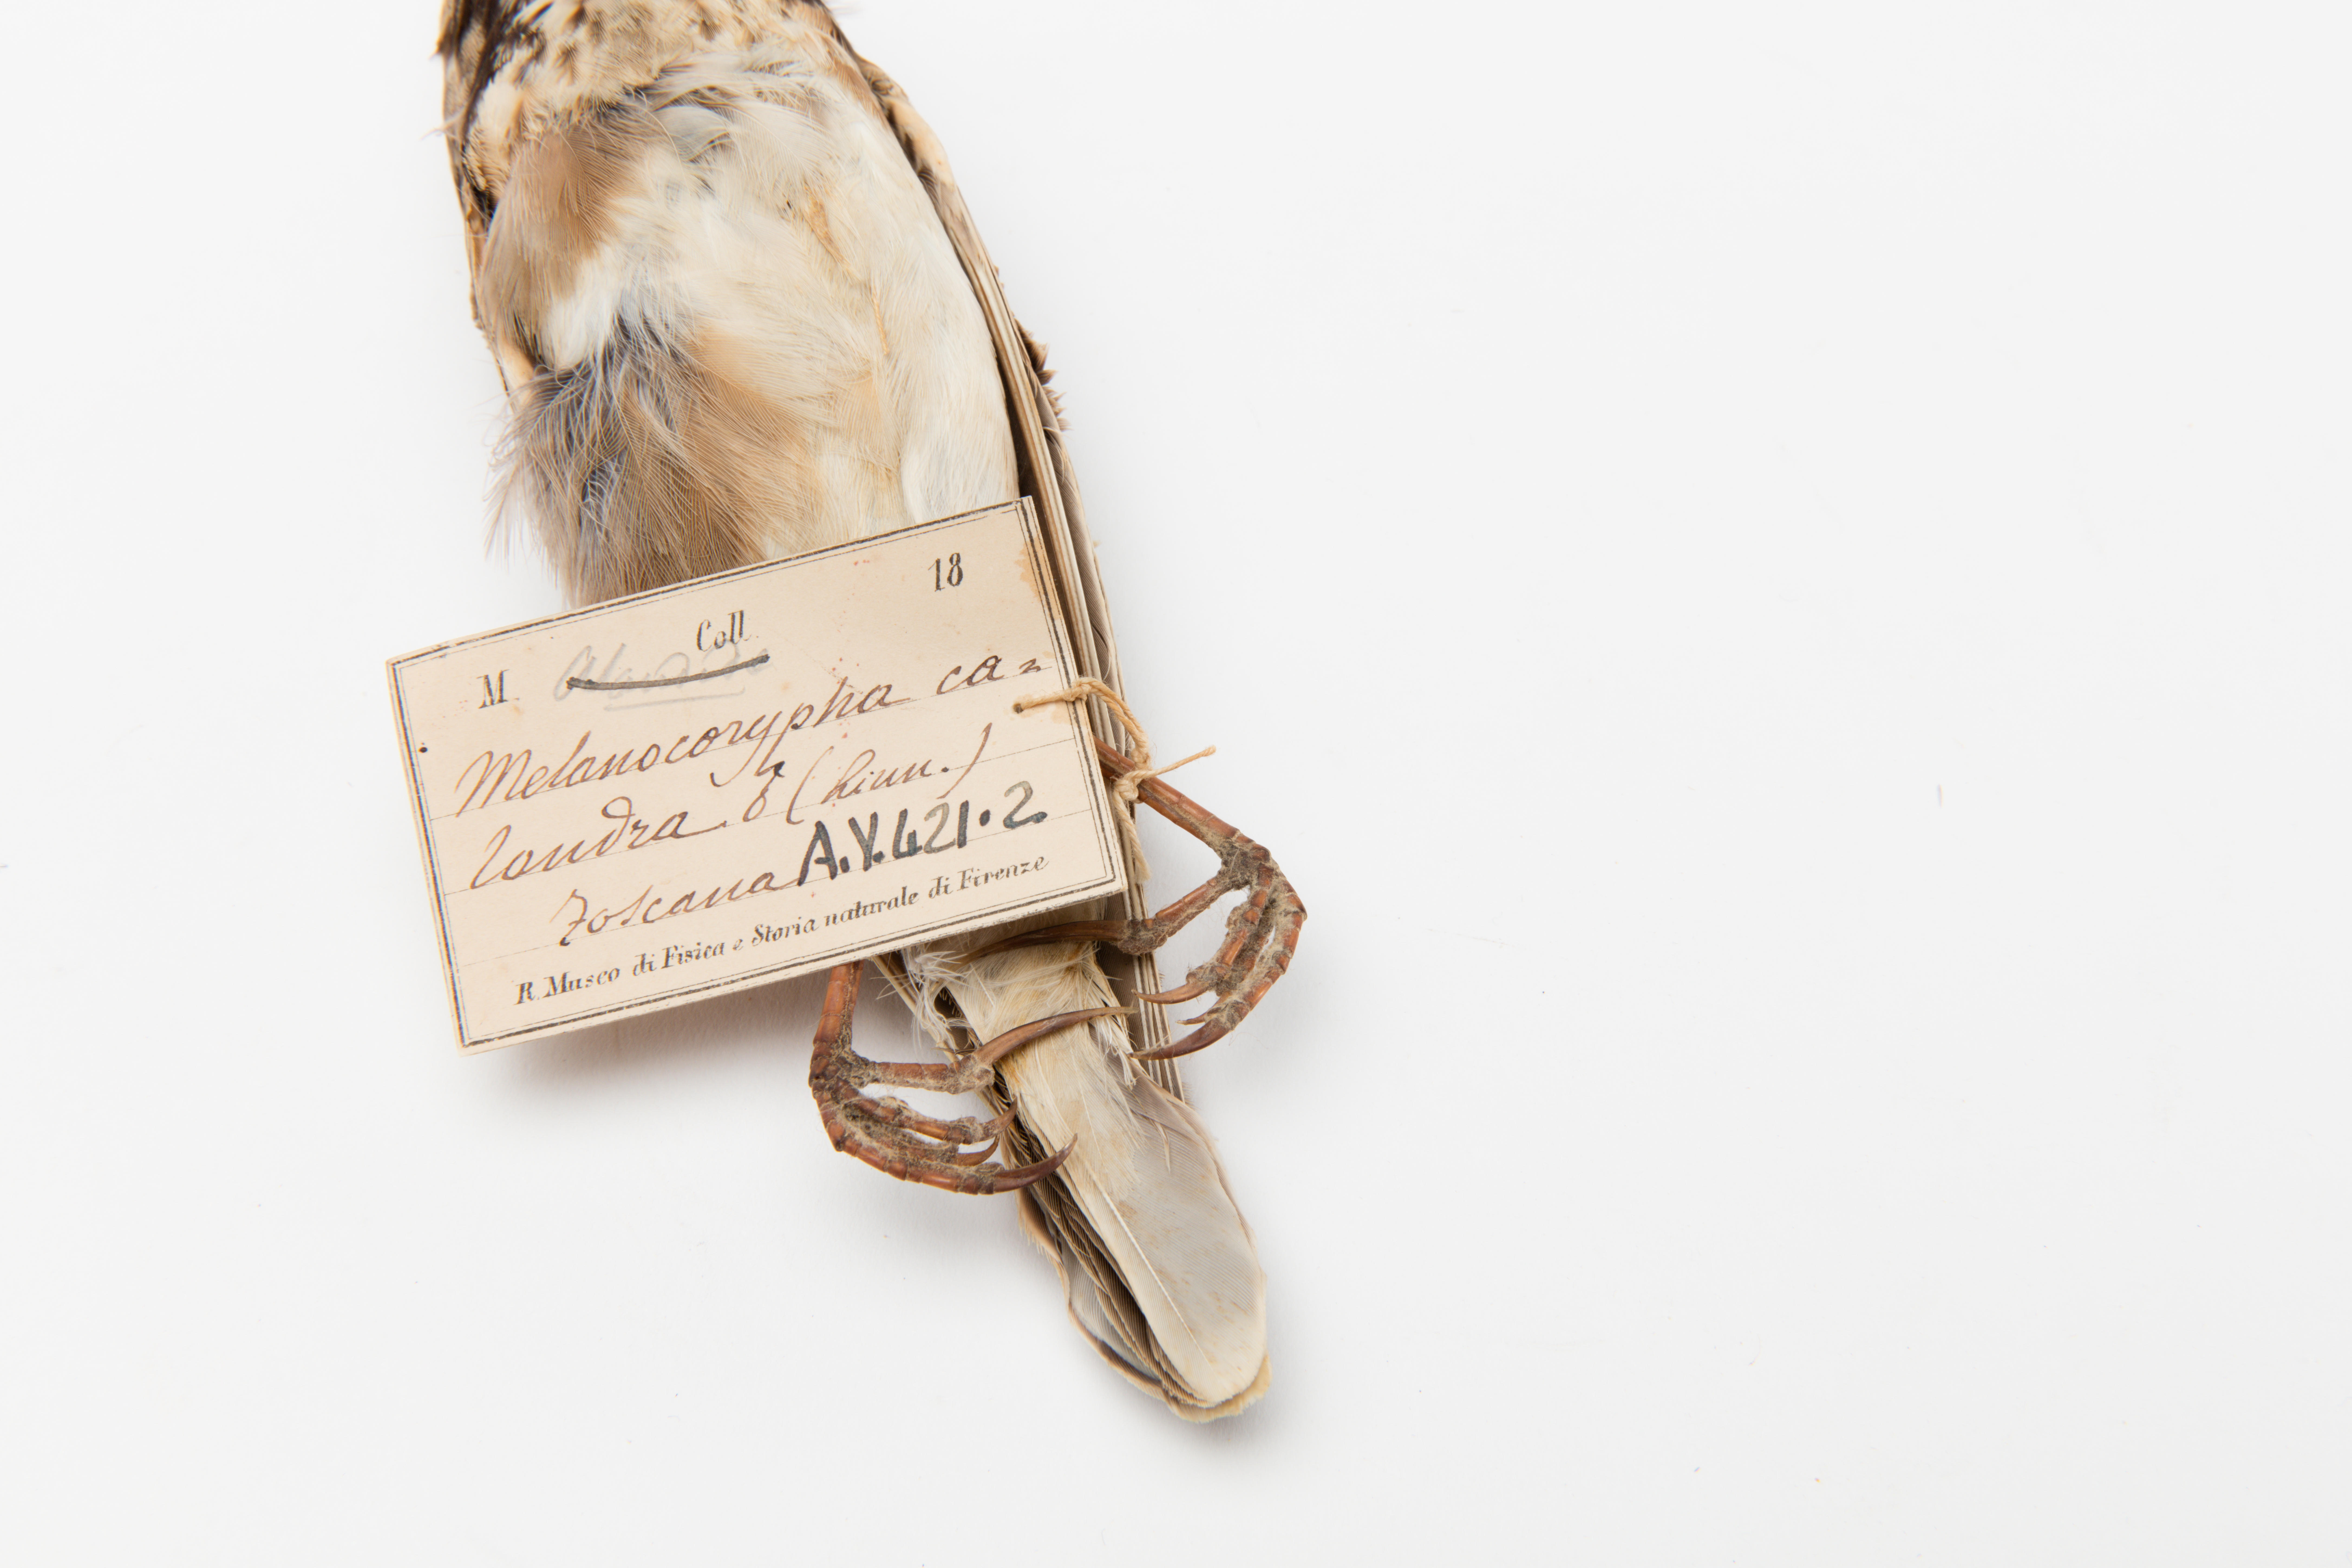 18
M. Coll.
Melanocorypha ca=
landra ♂ (Linn.)
Toscana A.Y.421.2
R. Museo di Fisica e Storia naturale di Firenze